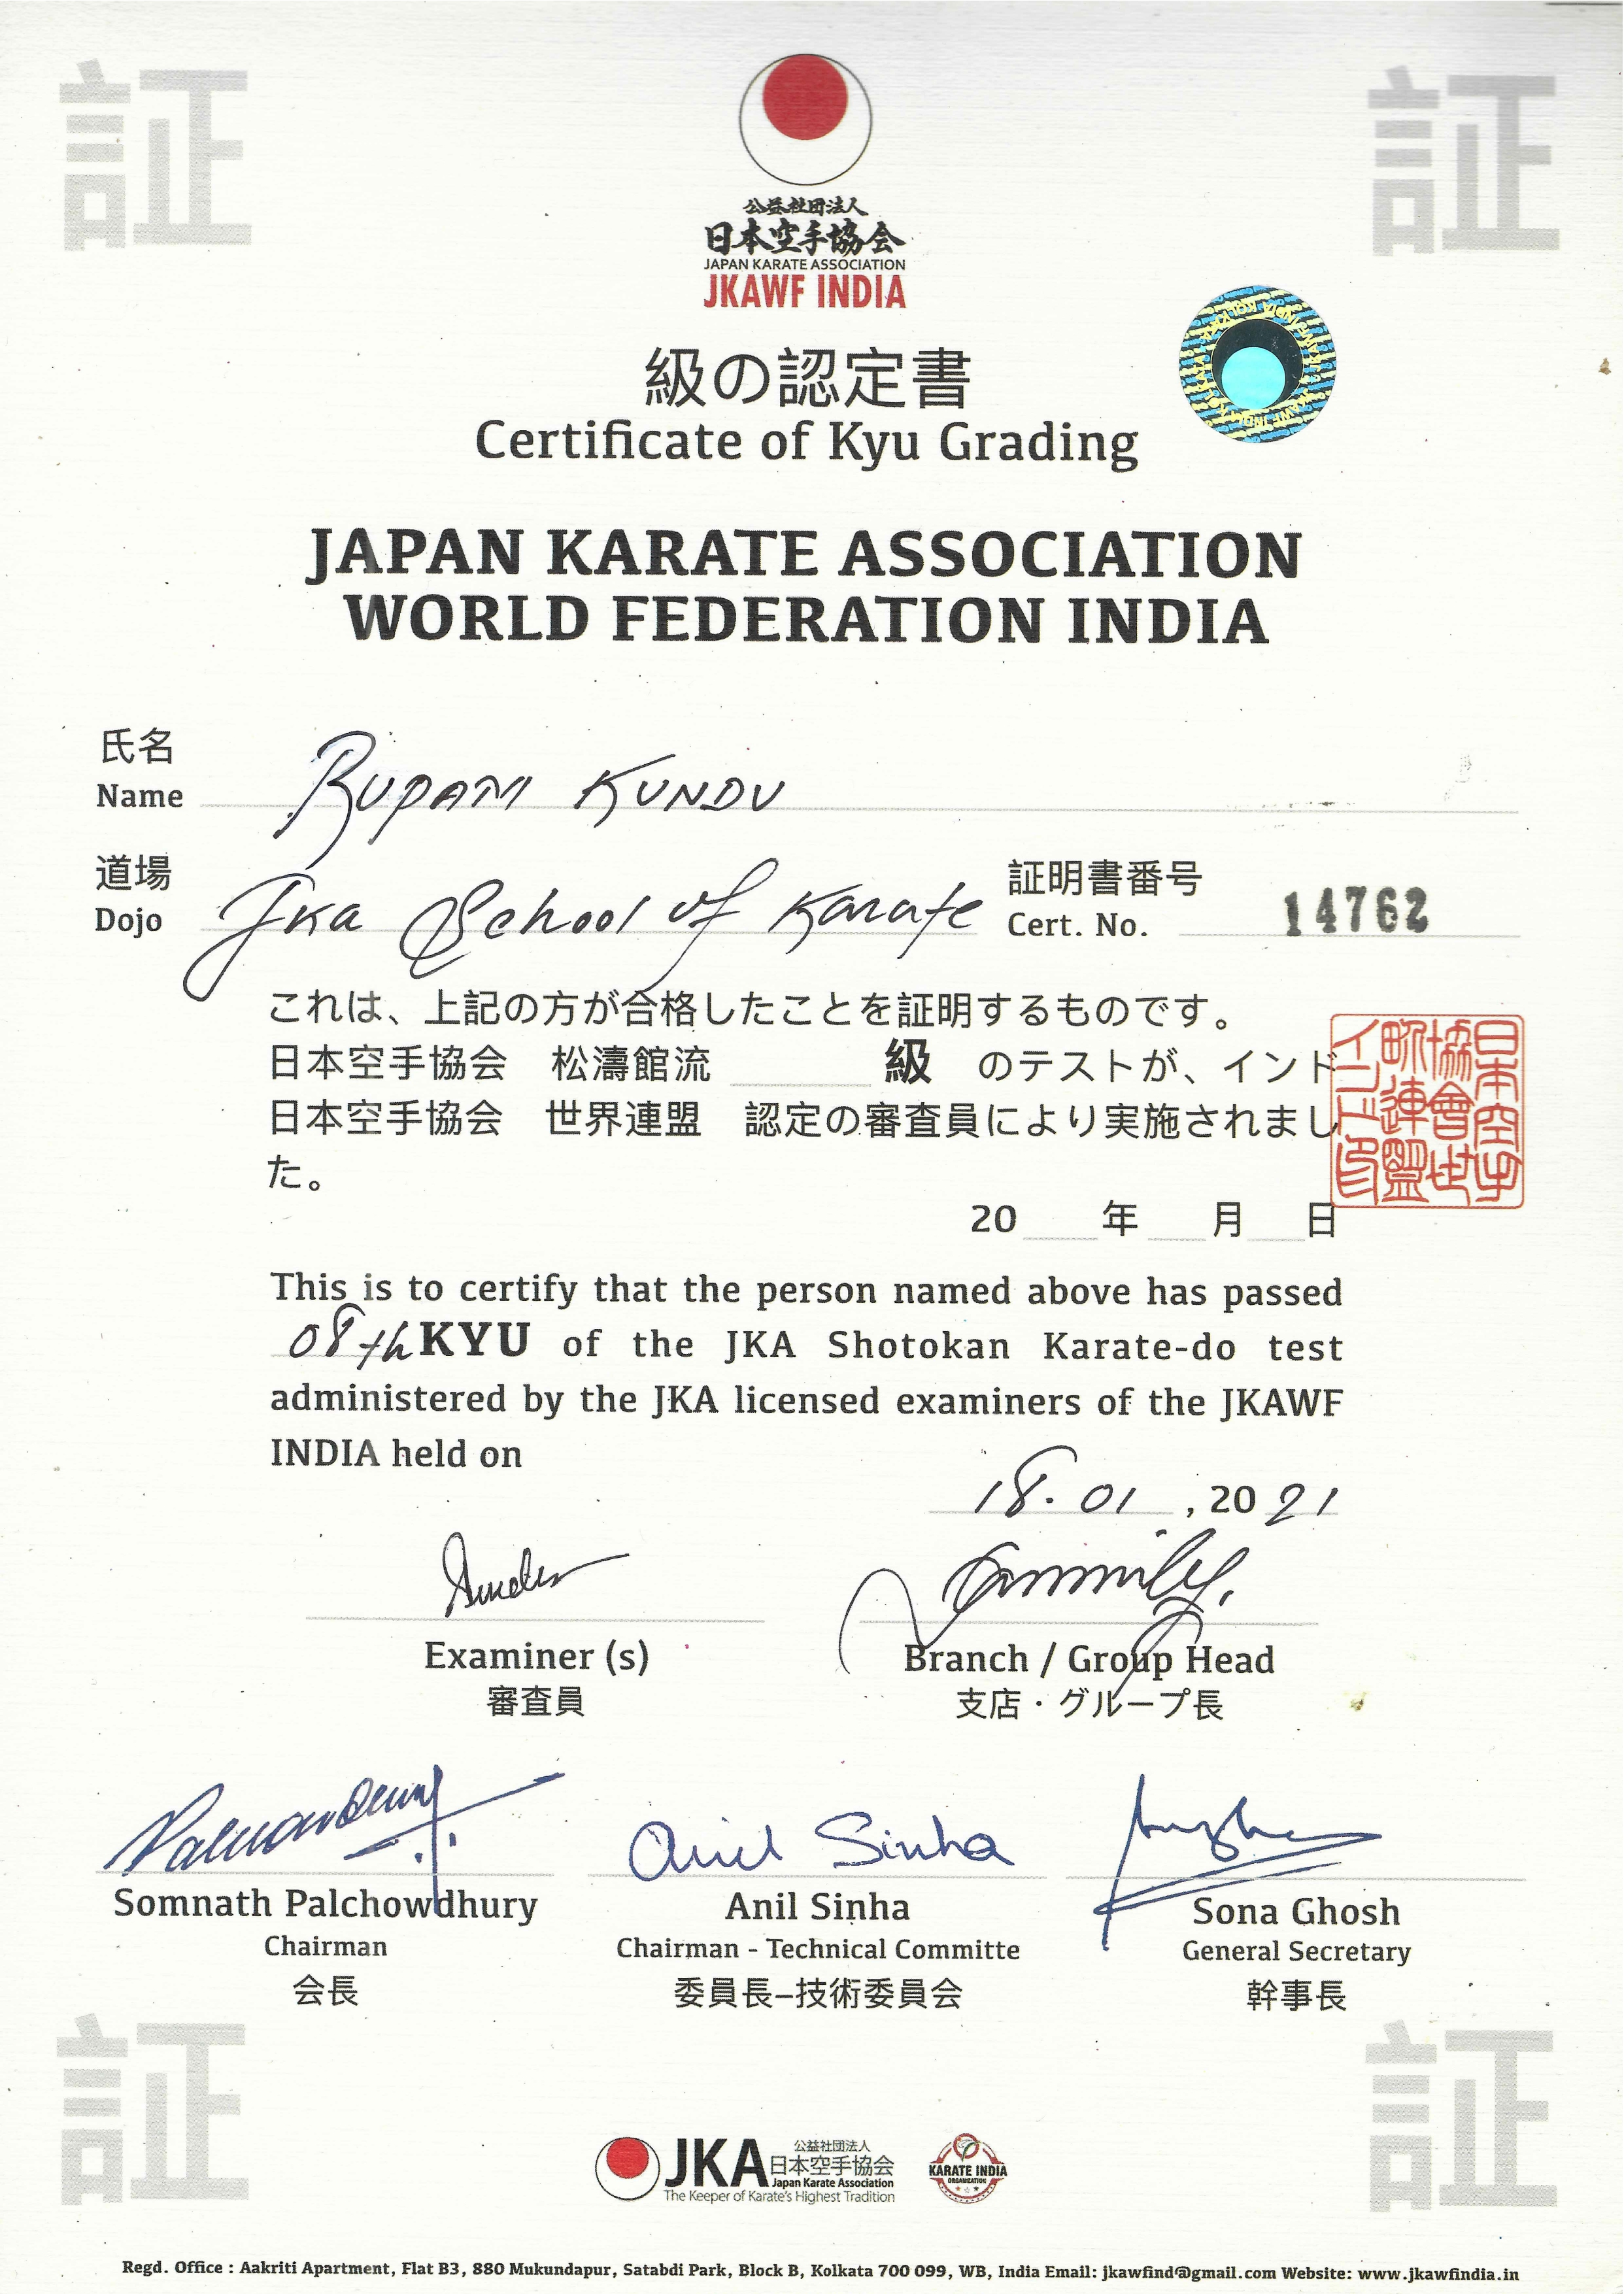 証
証
公益社団法人
日本空手協会
JAPAN KARATE ASSOCIATION
JKAWF INDIA
級の認定書
Certificate of Kyu Grading
JAPAN KARATE ASSOCIATION
WORLD FEDERATION INDIA
氏名
Name RUPAM KUNDU
道場
Dojo Jka School of Karate
証明書番号
Cert. No. 14762
これは、上記の方が合格したことを証明するものです。
日本空手協会 松濤館流 級 のテストが、インド
日本空手協会 世界連盟 認定の審査員により実施されまし
た。
20 年 月 日
This is to certify that the person named above has passed
08th KYU of the JKA Shotokan Karate-do test
administered by the JKA licensed examiners of the JKAWF
INDIA held on
18.01, 2021
Examiner (s)
審査員
Branch / Group Head
支店・グループ長
Anil Sinha
Somnath Palchowdhury
Chairman
会長
Anil Sinha
Chairman - Technical Committe
委員長–技術委員会
Sona Ghosh
General Secretary
幹事長
証
証
JKA
公益社団法人
日本空手協会
Japan Karate Association
The Keeper of Karate's Highest Tradition
KARATE INDIA
ORGANIZATION
Regd. Office : Aakriti Apartment, Flat B3, 880 Mukundapur, Satabdi Park, Block B, Kolkata 700 099, WB, India Email: jkawfind@gmail.com Website: www.jkawfindia.in